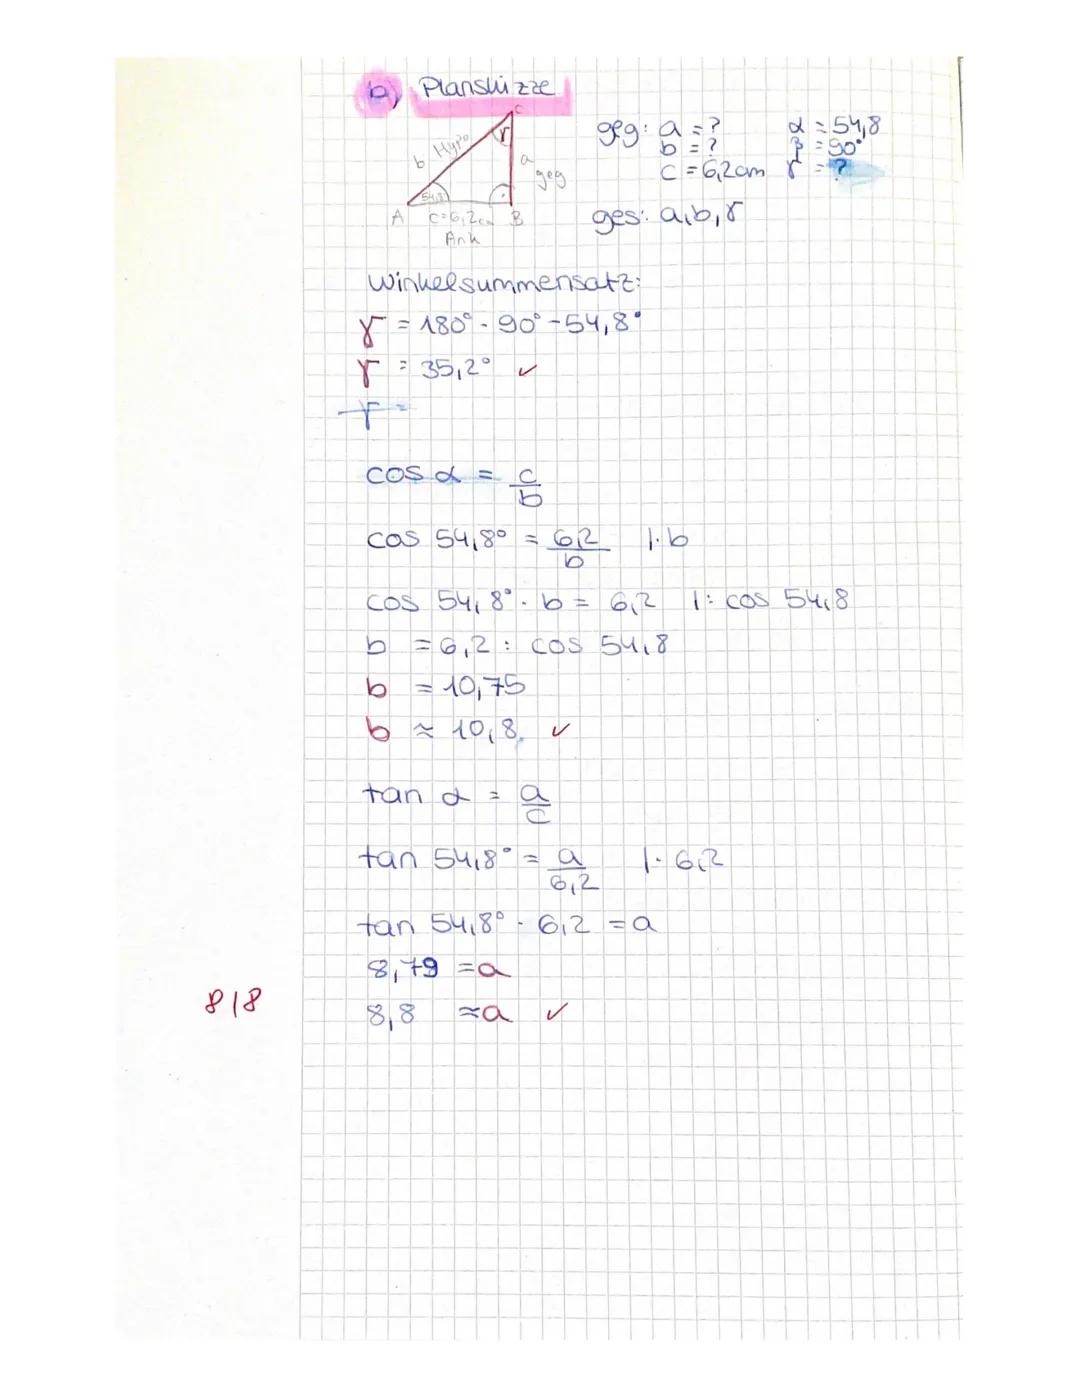 b) Planskizze
C
b Hypo
γ
a
geg
54,8°
A c=6,2cm B
Ank
geg: a = ? α = 54,8
b = ? β = 90°
c = 6,2cm γ = ?
ges: a,b,γ
Winkelsummensatz:
γ = 180° - 90° - 54,8°
γ = 35,2° ✓
γ =
cos α = c/b
cos 54,8° = 6,2/b |· b
cos 54,8° · b = 6,2 |: cos 54,8
b = 6,2 : cos 54,8
b = 10,75
b ≈ 10,8 ✓
tan α = a/c
tan 54,8° = a/6,2 |· 6,2
tan 54,8° · 6,2 = a
8,79 = a
8,8 ≈ a ✓
8/8